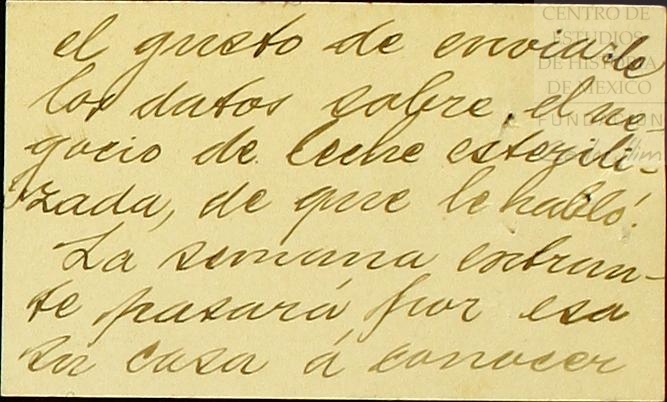 el gusto de enviarle
los datos sobre el ne-
gocio de leche esterili-
zada, de que le habló.
La semana entran-
te pasará por esa
su casa á conocer
CENTRO DE
ESTUDIOS
DE HISTORIA
DE MEXICO
FUNDACION